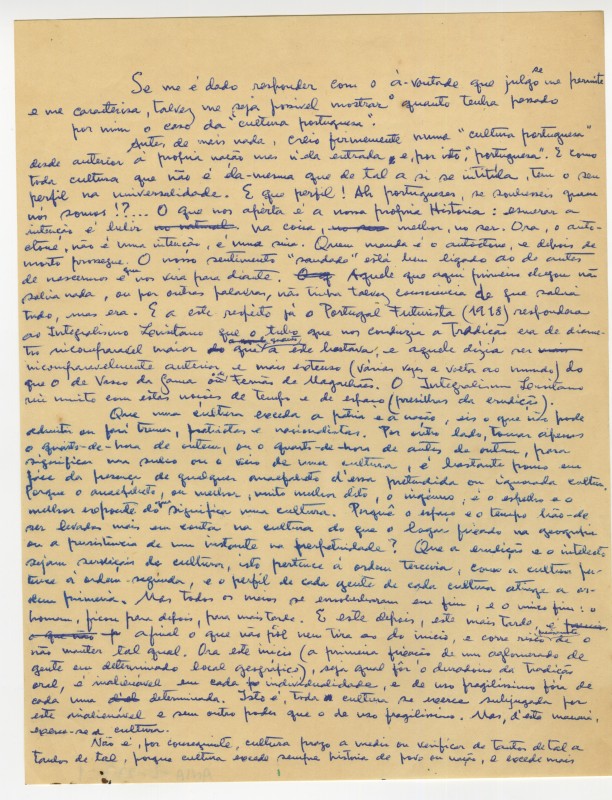 Se me é dado responder com o à-vontade que julgo se me permite
e me caracterisa, talvez me seja possivel mostrar o quanto tenha passado
por mim o caso da "cultura portuguesa".
Antes de mais nada, creio firmemente numa "cultura portuguesa"
desde anterior à propria nação mas n'ela entrada, e, por isto, "portuguesa". E como
toda cultura que não é da-mesma que de tal a si se intitula, tem o seu
perfil na universalidade. E que perfil! Ah portugueses, se soubesseis quem
nós somos!?... O que nos aperta é a nossa própria Historia: esmerar a
intuição é bulir na coisa, melhor, no ser. Ora, o autó-
ctone, não é uma intuição, é uma sina. Quem manda é o autoctone, e depois de
morto prossegue. O nosso sentimento "saudade" está bem ligado ao de antes
de nascermos e que nos vira para diante. Aquele que aqui primeiro chegou não
sabia nada, ou por outras palavras, não tinha talvez consciencia de que sabia
tudo, mas era. E a este respeito já o Portugal Futurista (1918) respondera
ao Integralismo Lusitano que o tubo que nos conduzia a Tradição era de diame-
tro incomparavel maior do que a este bastava, e aquele dizia ser
incomparavelmente anterior e mais extenso (várias vezes a volta ao mundo) do
que o de Vasco da Gama ou Fernão de Magalhães. O Integralismo Lusitano
riu muito com estas noções de tempo e de espaço (presilhas da erudição).
Que uma cultura exceda a pátria e a nação, eis o que não pode
admitir ou patriotas e nacionalistas. Por outro lado, tomar apenas
o quarto-de-hora de ontem, ou o quarto-de-hora de antes de ontem, para
significar um sulco ou o veio de uma cultura, é bastante pouco em
face da presença de qualquer anacefalto d'essa pretendida ou ignorada cultura.
Porque o analfabeto, ou melhor, muito melhor dito, o ingénuo, é o espelho e o
melhor expoente do que significa uma cultura. Porquê o espaço e o tempo hão-de
ser levados mais em conta na cultura do que o logar ficado na geografia
ou a persistência de um instante na perpetuidade? Que a erudição e o intelecto
sejam serviçais da cultura, isto pertence à ordem terceira, como a cultura per-
tence à ordem-segunda, e o perfil de cada gente de cada cultura atinge a or-
dem primeira. Mas todos os meios se envolveram em fim, e o unico fim: o
homem, ficou para depois, para mais tarde. E este depois, este mais tarde, é
afinal o que não põe nem tira ao do inicio, e corre risco de
não manter tal qual. Ora este inicio (a primeira fixação de um aglomerado de
gente em determinado local geografico), seja qual fôr o duradouro da tradição
oral, é inalienável em cada individualidade, e de uso fragilissimo fóra de
cada uma determinada. Isto é, toda cultura se exerce subjugada por
este inalienável e sem outro poder que o de uso fragilissimo. Mas, d'esta maneira,
exerce-se a cultura.
Não é, por conseguinte, cultura prazo a medir ou verificar de tantos de tal a
tantos de tal, porque cultura excede sempre história de povo ou nação, e excede mais